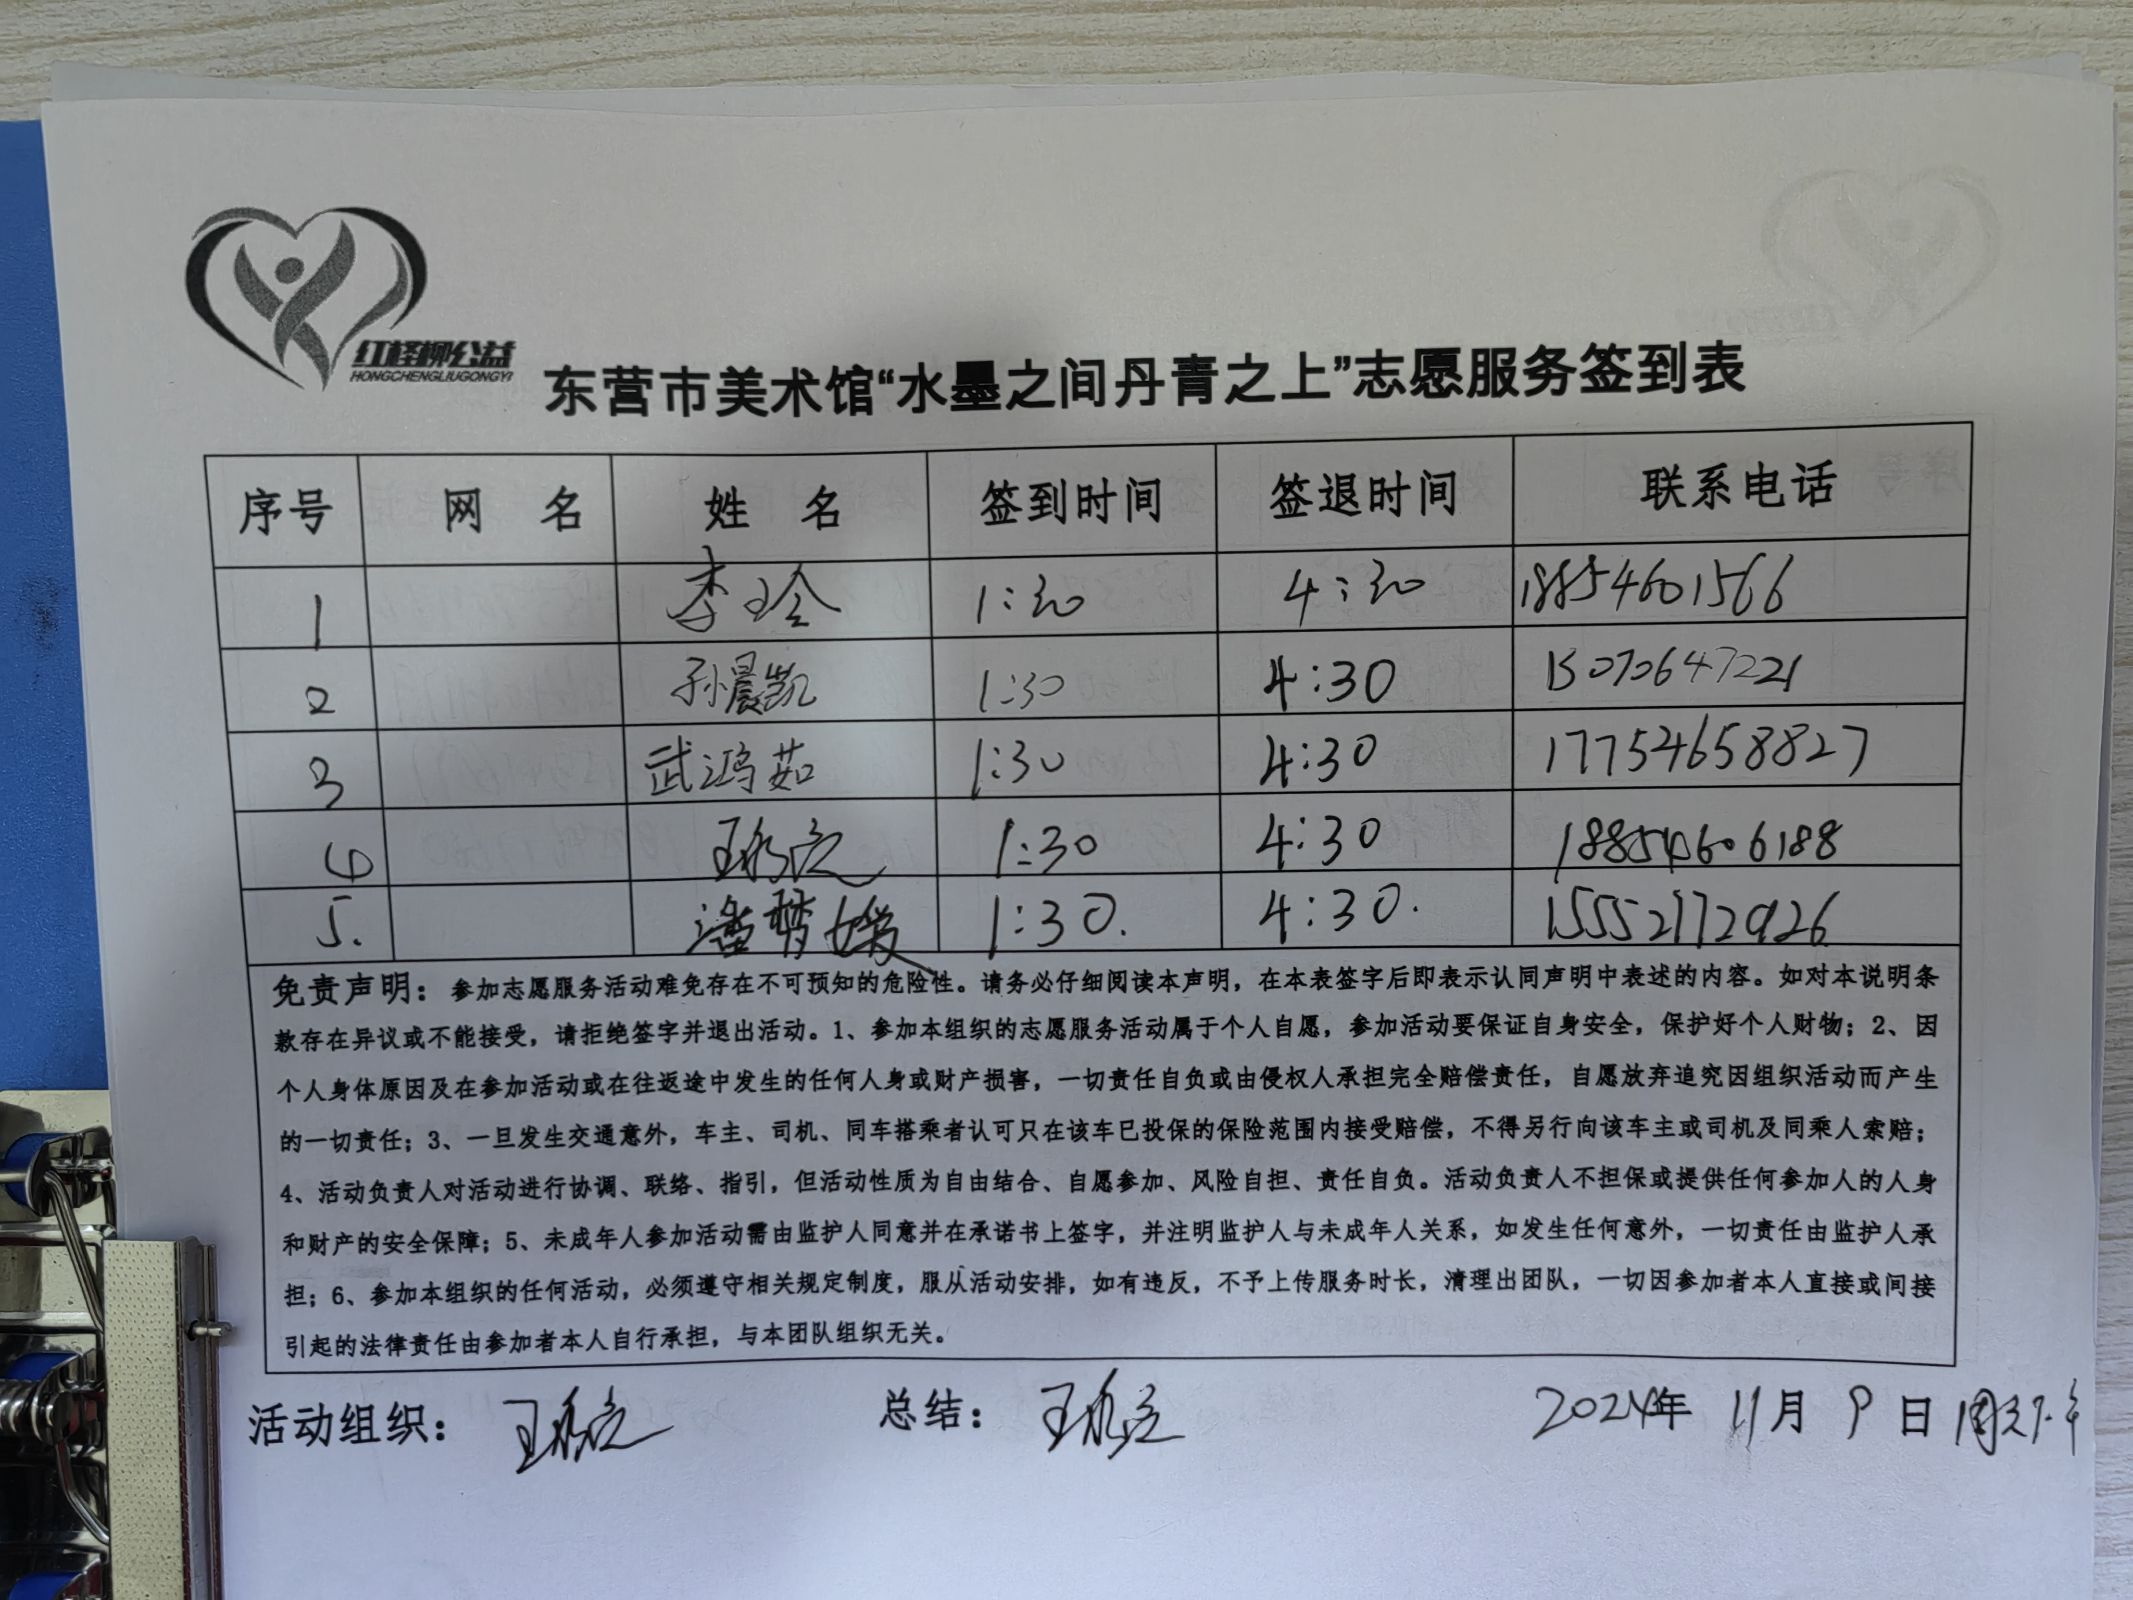 红柽柳公益
HONGCHENGLIUGONGYI
东营市美术馆“水墨之间丹青之上”志愿服务签到表
序号 网 名 姓 名 签到时间 签退时间 联系电话
1 李玲 1:30 4:30 18854601566
2 孙晨凯 1:30 4:30 15070647221
3 武鸿茹 1:30 4:30 17754658827
4 1:30 4:30 18854606188
5. 潘梦媛 1:30. 4:30. 15552172926
免责声明：参加志愿服务活动难免存在不可预知的危险性。请务必仔细阅读本声明，在本表签字后即表示认同声明中表述的内容。如对本说明条
款存在异议或不能接受，请拒绝签字并退出活动。1、参加本组织的志愿服务活动属于个人自愿，参加活动要保证自身安全，保护好个人财物；2、因
个人身体原因及在参加活动或在往返途中发生的任何人身或财产损害，一切责任自负或由侵权人承担完全赔偿责任，自愿放弃追究因组织活动而产生
的一切责任；3、一旦发生交通意外，车主、司机、同车搭乘者认可只在该车已投保的保险范围内接受赔偿，不得另行向该车主或司机及同乘人索赔；
4、活动负责人对活动进行协调、联络、指引，但活动性质为自由结合、自愿参加、风险自担、责任自负。活动负责人不担保或提供任何参加人的人身
和财产的安全保障；5、未成年人参加活动需由监护人同意并在承诺书上签字，并注明监护人与未成年人关系，如发生任何意外，一切责任由监护人承
担；6、参加本组织的任何活动，必须遵守相关规定制度，服从活动安排，如有违反，不予上传服务时长，清理出团队，一切因参加者本人直接或间接
引起的法律责任由参加者本人自行承担，与本团队组织无关。
活动组织： 总结： 2024年 11月 9日 周六下午